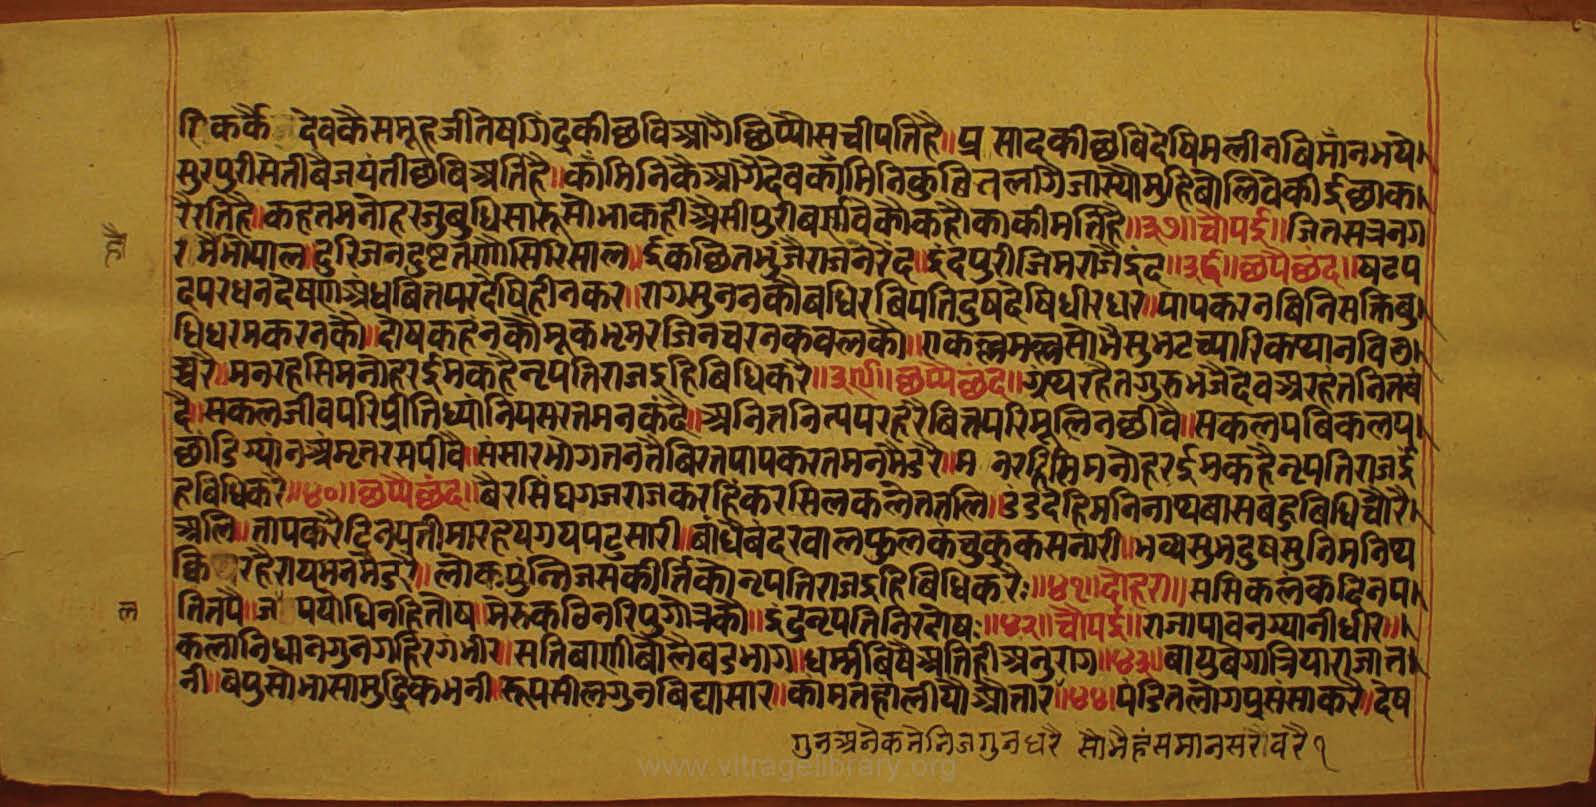 देवकैसमूहजीतेषगिंदुकीछविआगैछिप्यौसचीपतिहै॥प्रसादकीछबिदेषिमलीनबिमाँनभये
सुरपुरीसेतीबैजयंतीछबिअतिहै॥काँमिनिकैआगैदेवकाँमिनिकुबितलागैजास्यौमुहिबोलिवैकीईछाक
रैरतिहै॥कहतमनोहरजुबुधिसारूसोभाकहीऐसीपुरीबर्णवैकौकहौकाकीमतिहै॥३७॥चौपई॥जितसत्रनग
रमैभोपाल॥दुरिजनदुष्टतणौसिरिसाल॥ईकछितभुंजैराजनरंद॥इंदपुरीजिमराजैइंद॥३८॥छपैछंद॥षटप
दपरधनदेषणअंधबितपरदेषिहीनकर॥रागसुननकौबधिरबिपतिदुषदेषिधीरधर॥पापकरनबिनिसक्तिबु
धिधरमकरनकौ॥दोषकहेनकौमूकभृमरजिनचरनकवलकौ॥एकह्लमल्लसोभैसुभटच्यारिकप्यानविठा
च्चरै॥मनरहसिमनोहरईमकहैनृपतिराजइहिबिधिकरै॥३९॥छप्पैछंद॥ग्रप्यरहैतगुरुभजैदेवअरहंतनितबं
दै॥सकलजीवपरिप्रीतिध्यांनिपसरतमनकंदै॥अनितनित्यपरहरेबितपरिमूलिनछीवै॥सकलपबिकलप
छोडिग्यानअंमृतरसपीवै॥संसारभोगतनतैबिरतपापकरतमनमैडरै॥मनरहिसिमनोहरईमकहैनृपतिराजई
हबिधिकरै॥४०॥छप्पैछंद॥बैरसिंघगजराजकरहिंकरसिलकलेततलि॥डंडदेहिमनिनाप्यबासबहुबिधिचौरै
अलि॥तापकरैदिनपतीमारहयगयपटुसारी॥बांधैबंदरवालफुलकचुकुकसनारी॥भव्यसुभदुषसुनिमनिप्य
रहैरायमनमैडरै॥लोकपुंन्तिजसकीर्तिकौनृपतिराजइहिबिधिकरैः॥४१॥दोहरा॥ससिकलंकदिनपा
तितपै॥ज पयोधिनहितोष॥मेरुकठिनरिपुगोत्रकौ॥इंदुनृपतिनिरदोषः॥४२॥चौपई॥राजापावनग्यानीधीर॥
कलानिधानगुनगहिरगंभीर॥सतिबाणीबोलैबडभाग॥धर्म्मबिषैअतिहीअनुराग॥४३॥बायुबेगात्रियाराजान
नी॥बपुसोभासामुद्रिकभनी॥रूपसीलगुनबिद्यासार॥कांमतहांलीयौऔतार॥४४॥पंडितलोगप्रसंसाकरै॥देष
गुनअनेकनेनिजगुनधरै सोभैहंसमानसरोवरै १
हौ
ल
www.vitragelibrary.org